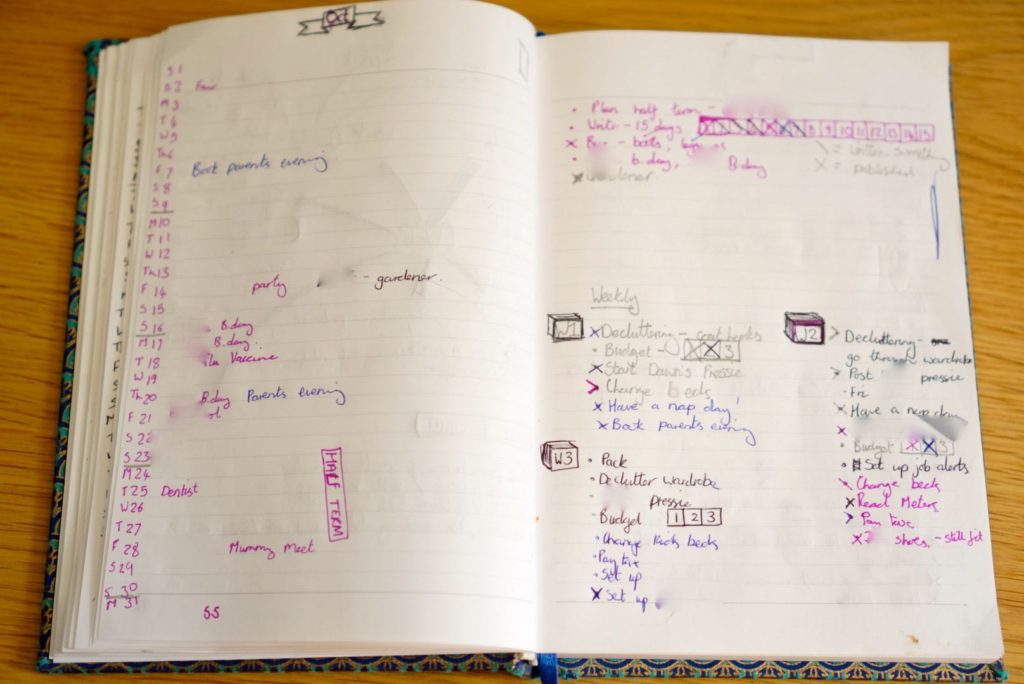 Oct
S 1
S 2 Fair
M 3
T 4
W 5
Th 6
F 7 Book parents evening
S 8
S 9
M 10
T 11
W 12
Th 13
F 14 party - gardener.
S 15
S 16 B.day
M 17 B.day
T 18 Vaccine
W 19
Th 20 B.day Parents evening
F 21
S 22
S 23
M 24
T 25 Dentist
W 26
T 27
F 28 Mummy meet
S 29
S 30
M 31
HALF TERM
55
• Plan half term -
• Write - 15 days 8 9 10 11 12 13 14 15
\ = written something
x - boots,
X = published
• b.day, B.day
x gardener.
Weekly
W1
x Decluttering -
• Budget - 3
x Start Dawn's Pressie
> Change beds
x Have a nap day!
x Book parents evening
W2
> Decluttering -
go through wardrobe
> Post pressie
- Fri
x Have a nap day
x
• Budget 1 3
• Set up job alerts
Change beds
x Read Meters
> Pay tax
x shoes. - still fit
W3
• Pack
• Declutter wardrobe
pressie
- Budget 1 2 3
• Change beds
• Pay tax
• Set up
x Set up